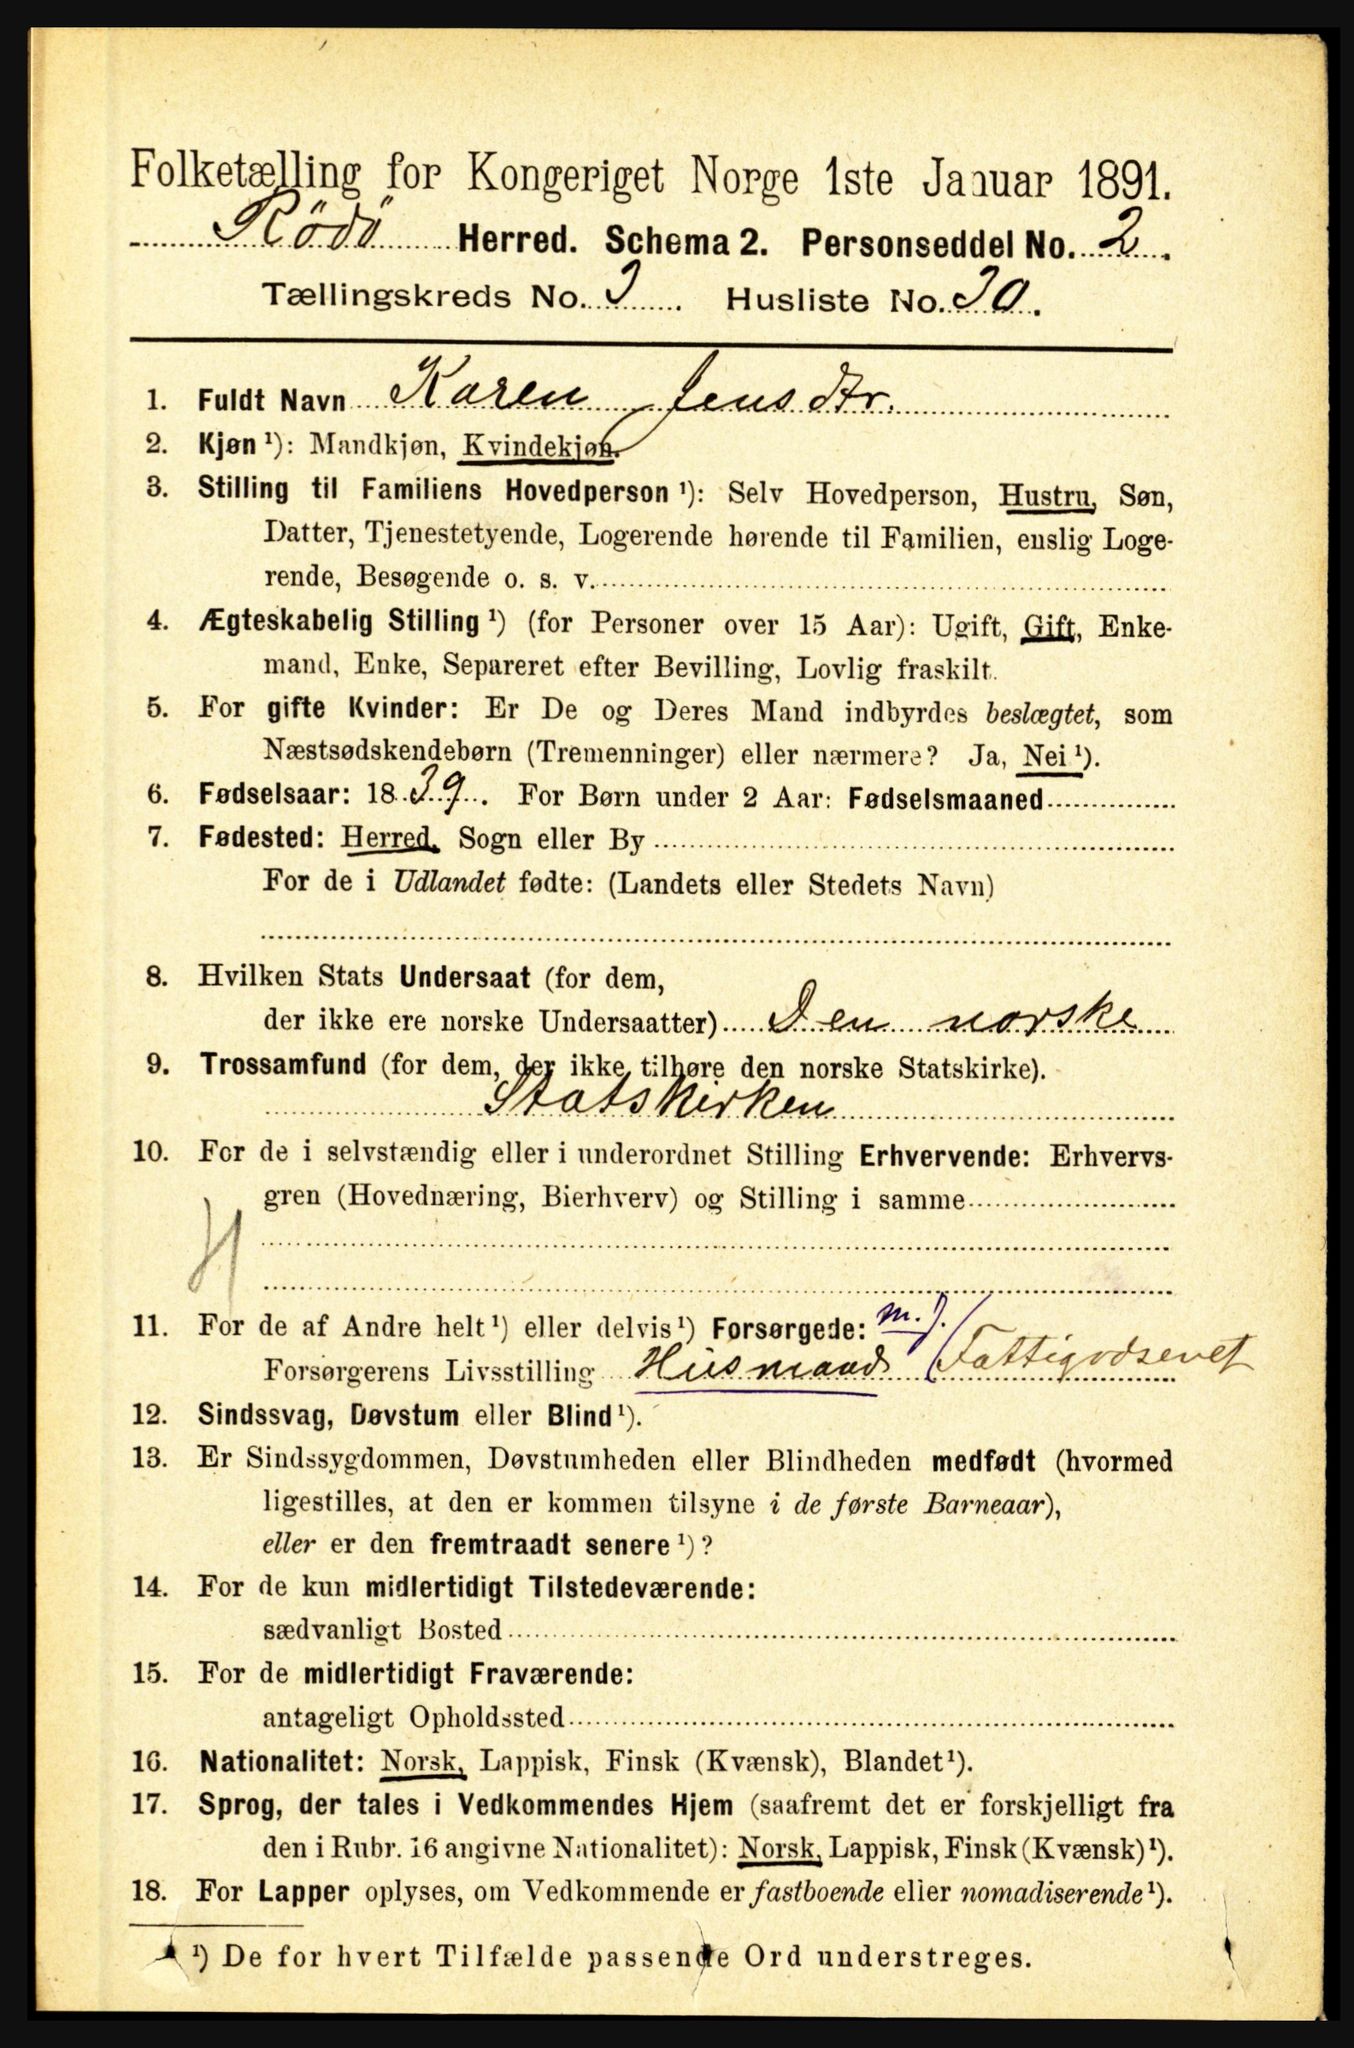 Folketælling for Kongeriget Norge 1ste Januar 1891.
Rödö Herred. Schema 2. Personseddel No. 2.
Tællingskreds No. 3. Husliste No. 30.
1. Fuldt Navn Karen Jensdtr.
2. Kjøn ¹): Mandkjøn, Kvindekjøn.
3. Stilling til Familiens Hovedperson ¹): Selv Hovedperson, Hustru, Søn,
Datter, Tjenestetyende, Logerende hørende til Familien, enslig Loge-
rende, Besøgende o. s. v.
4. Ægteskabelig Stilling ¹) (for Personer over 15 Aar): Ugift, Gift, Enke-
mand, Enke, Separeret efter Bevilling, Lovlig fraskilt.
5. For gifte Kvinder: Er De og Deres Mand indbyrdes beslægtet, som
Næstsødskendebørn (Tremenninger) eller nærmere? Ja, Nei ¹).
6. Fødselsaar: 1839. For Børn under 2 Aar: Fødselsmaaned
7. Fødested: Herred, Sogn eller By
For de i Udlandet fødte: (Landets eller Stedets Navn)
8. Hvilken Stats Undersaat (for dem,
der ikke ere norske Undersaatter) Den norske
9. Trossamfund (for dem, der ikke tilhøre den norske Statskirke).
Statskirken
10. For de i selvstændig eller i underordnet Stilling Erhvervende: Erhvervs-
gren (Hovednæring, Bierhverv) og Stilling i samme
H
11. For de af Andre helt ¹) eller delvis ¹) Forsørgede: m. J.
Forsørgerens Livsstilling Husmand (Fattigvdsenet
12. Sindssvag, Døvstum eller Blind ¹).
13. Er Sindssygdommen, Døvstumheden eller Blindheden medfødt (hvormed
ligestilles, at den er kommen tilsyne i de første Barneaar),
eller er den fremtraadt senere ¹)?
14. For de kun midlertidigt Tilstedeværende:
sædvanligt Bosted
15. For de midlertidigt Fraværende:
antageligt Opholdssted
16. Nationalitet: Norsk, Lappisk, Finsk (Kvænsk), Blandet ¹).
17. Sprog, der tales i Vedkommendes Hjem (saafremt det er forskjelligt fra
den i Rubr. 16 angivne Nationalitet): Norsk, Lappisk, Finsk (Kvænsk) ¹).
18. For Lapper oplyses, om Vedkommende er fastboende eller nomadiserende ¹).
¹) De for hvert Tilfælde passende Ord understreges.